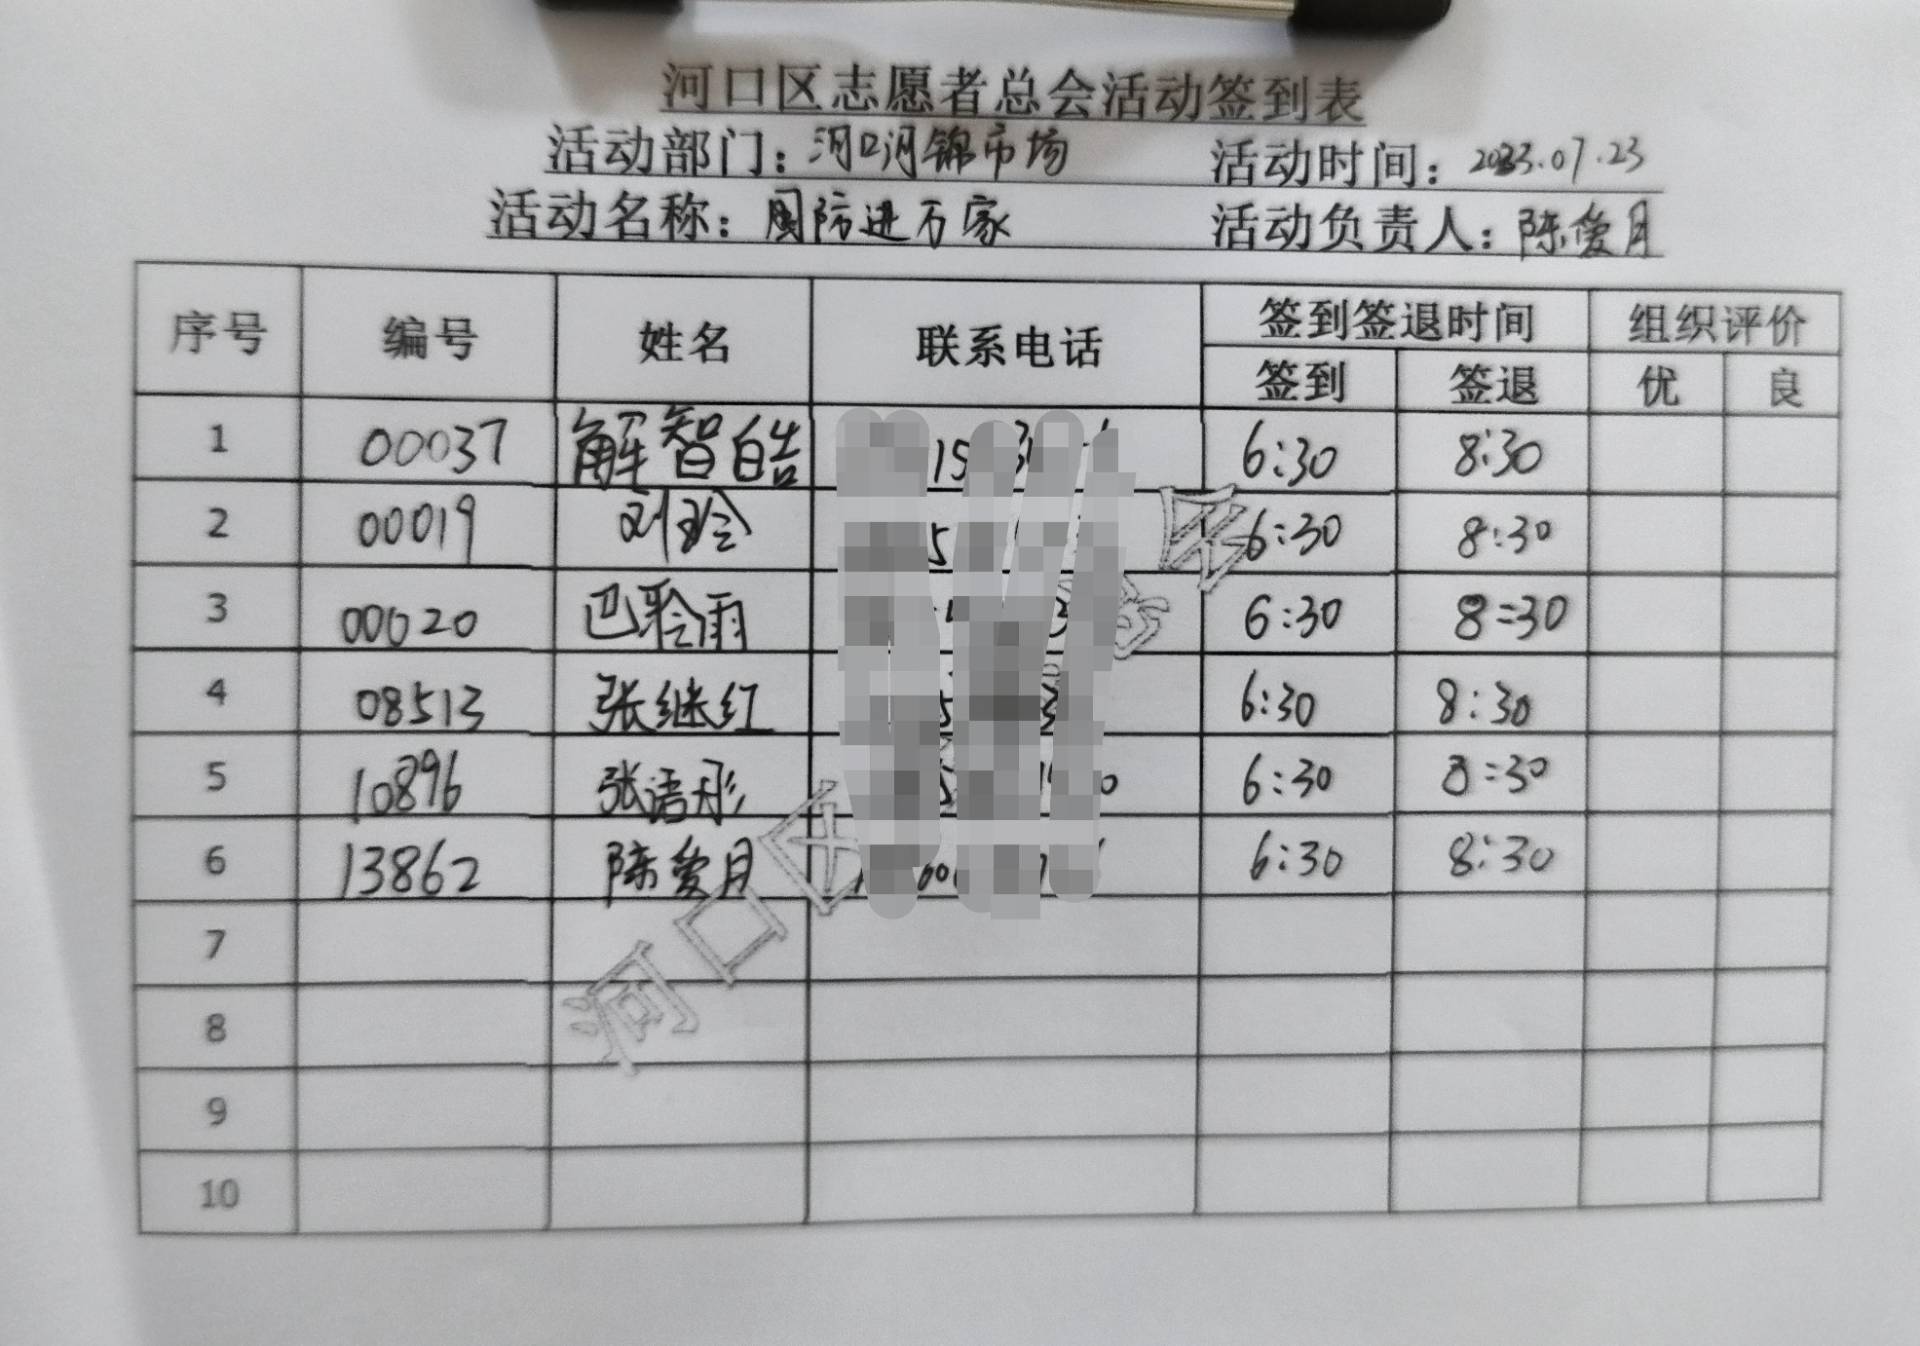 河口区志愿者总会活动签到表
活动部门：河口河锦市场 活动时间：2023.07.23
活动名称：国防进万家 活动负责人：陈爱月
序号 编号 姓名 联系电话 签到签退时间 组织评价
签到 签退 优 良
1 00037 解智皓 6:30 8:30
2 00019 刘玲 6:30 8:30
3 00020 巴聆雨 6:30 8:30
4 08513 张继红 6:30 8:30
5 10896 张语彤 6:30 8:30
6 13862 陈爱月 6:30 8:30
7
8
9
10
河口区